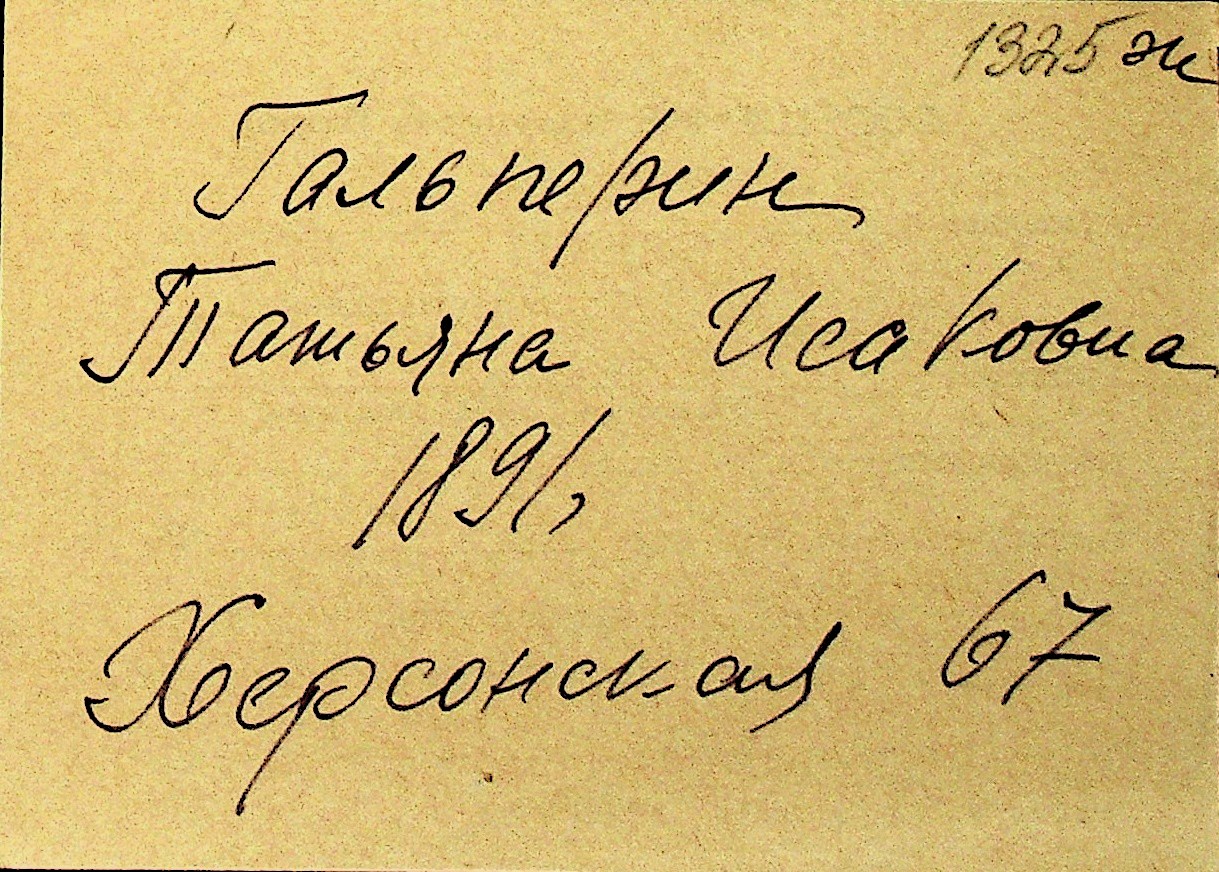 1325 ж
Гальперин
Татьяна Исаковна
1891,
Херсонская 67